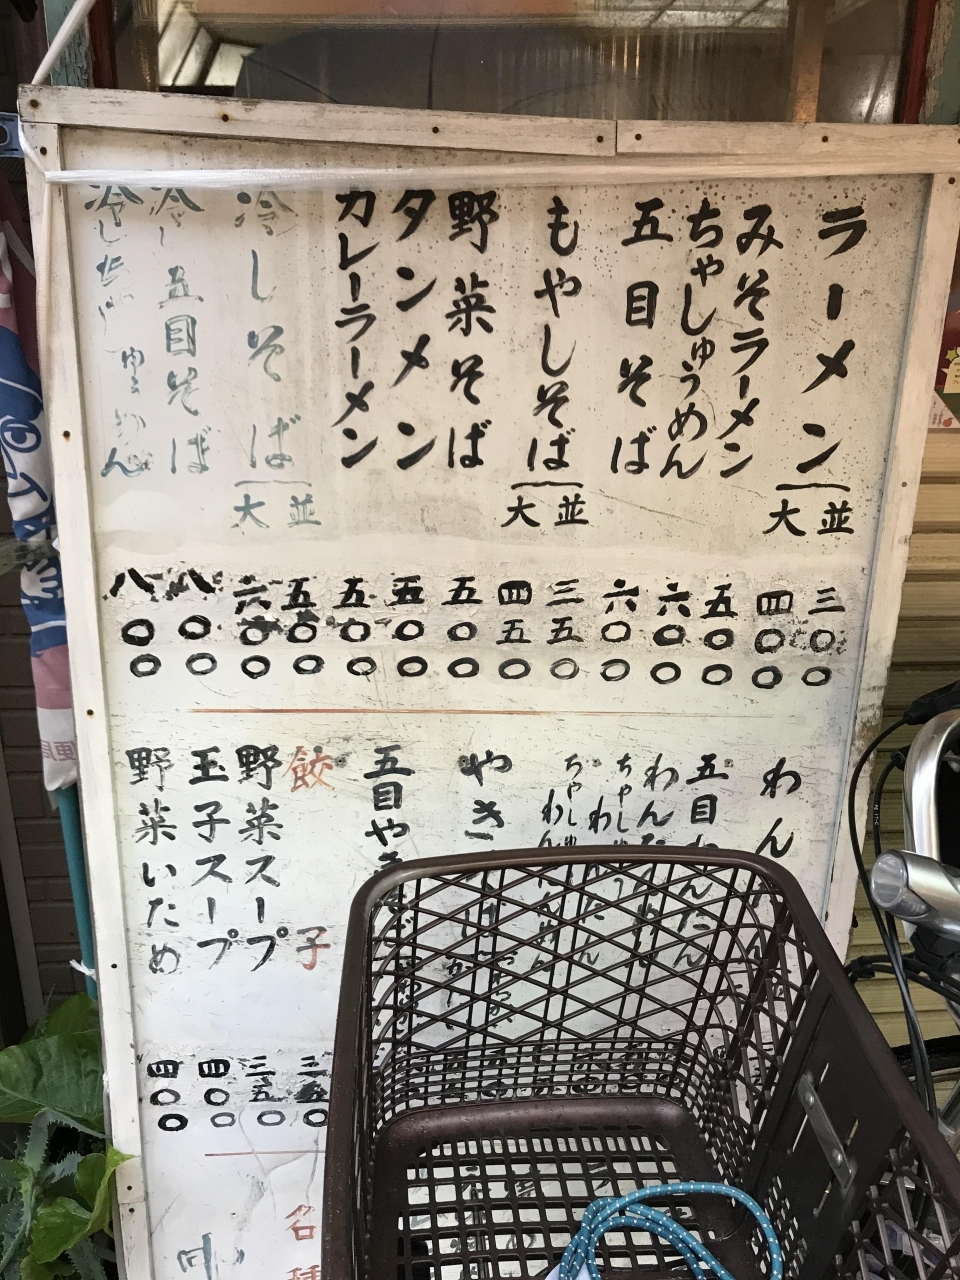 ラーメン 並 大
みそラーメン
ちゃしゅうめん
五目そば
もやしそば 並 大
野菜そば
タンメン
カレーラーメン
冷しそば 並 大
冷し五目そば
冷しちゃしゅうめん
三〇〇
四〇〇
五〇〇
六〇〇
六〇〇
三五〇
四五〇
五〇〇
五〇〇
五〇〇
五〇〇
六〇〇
八〇〇
八〇〇
わん
五目わんたん
わんたん
ちゃしゅうわん
ちゃしゅ わん
やき
五目やき
餃子
野菜スープ
玉子スープ
野菜いため
三五〇
三五〇
四〇〇
四〇〇
名